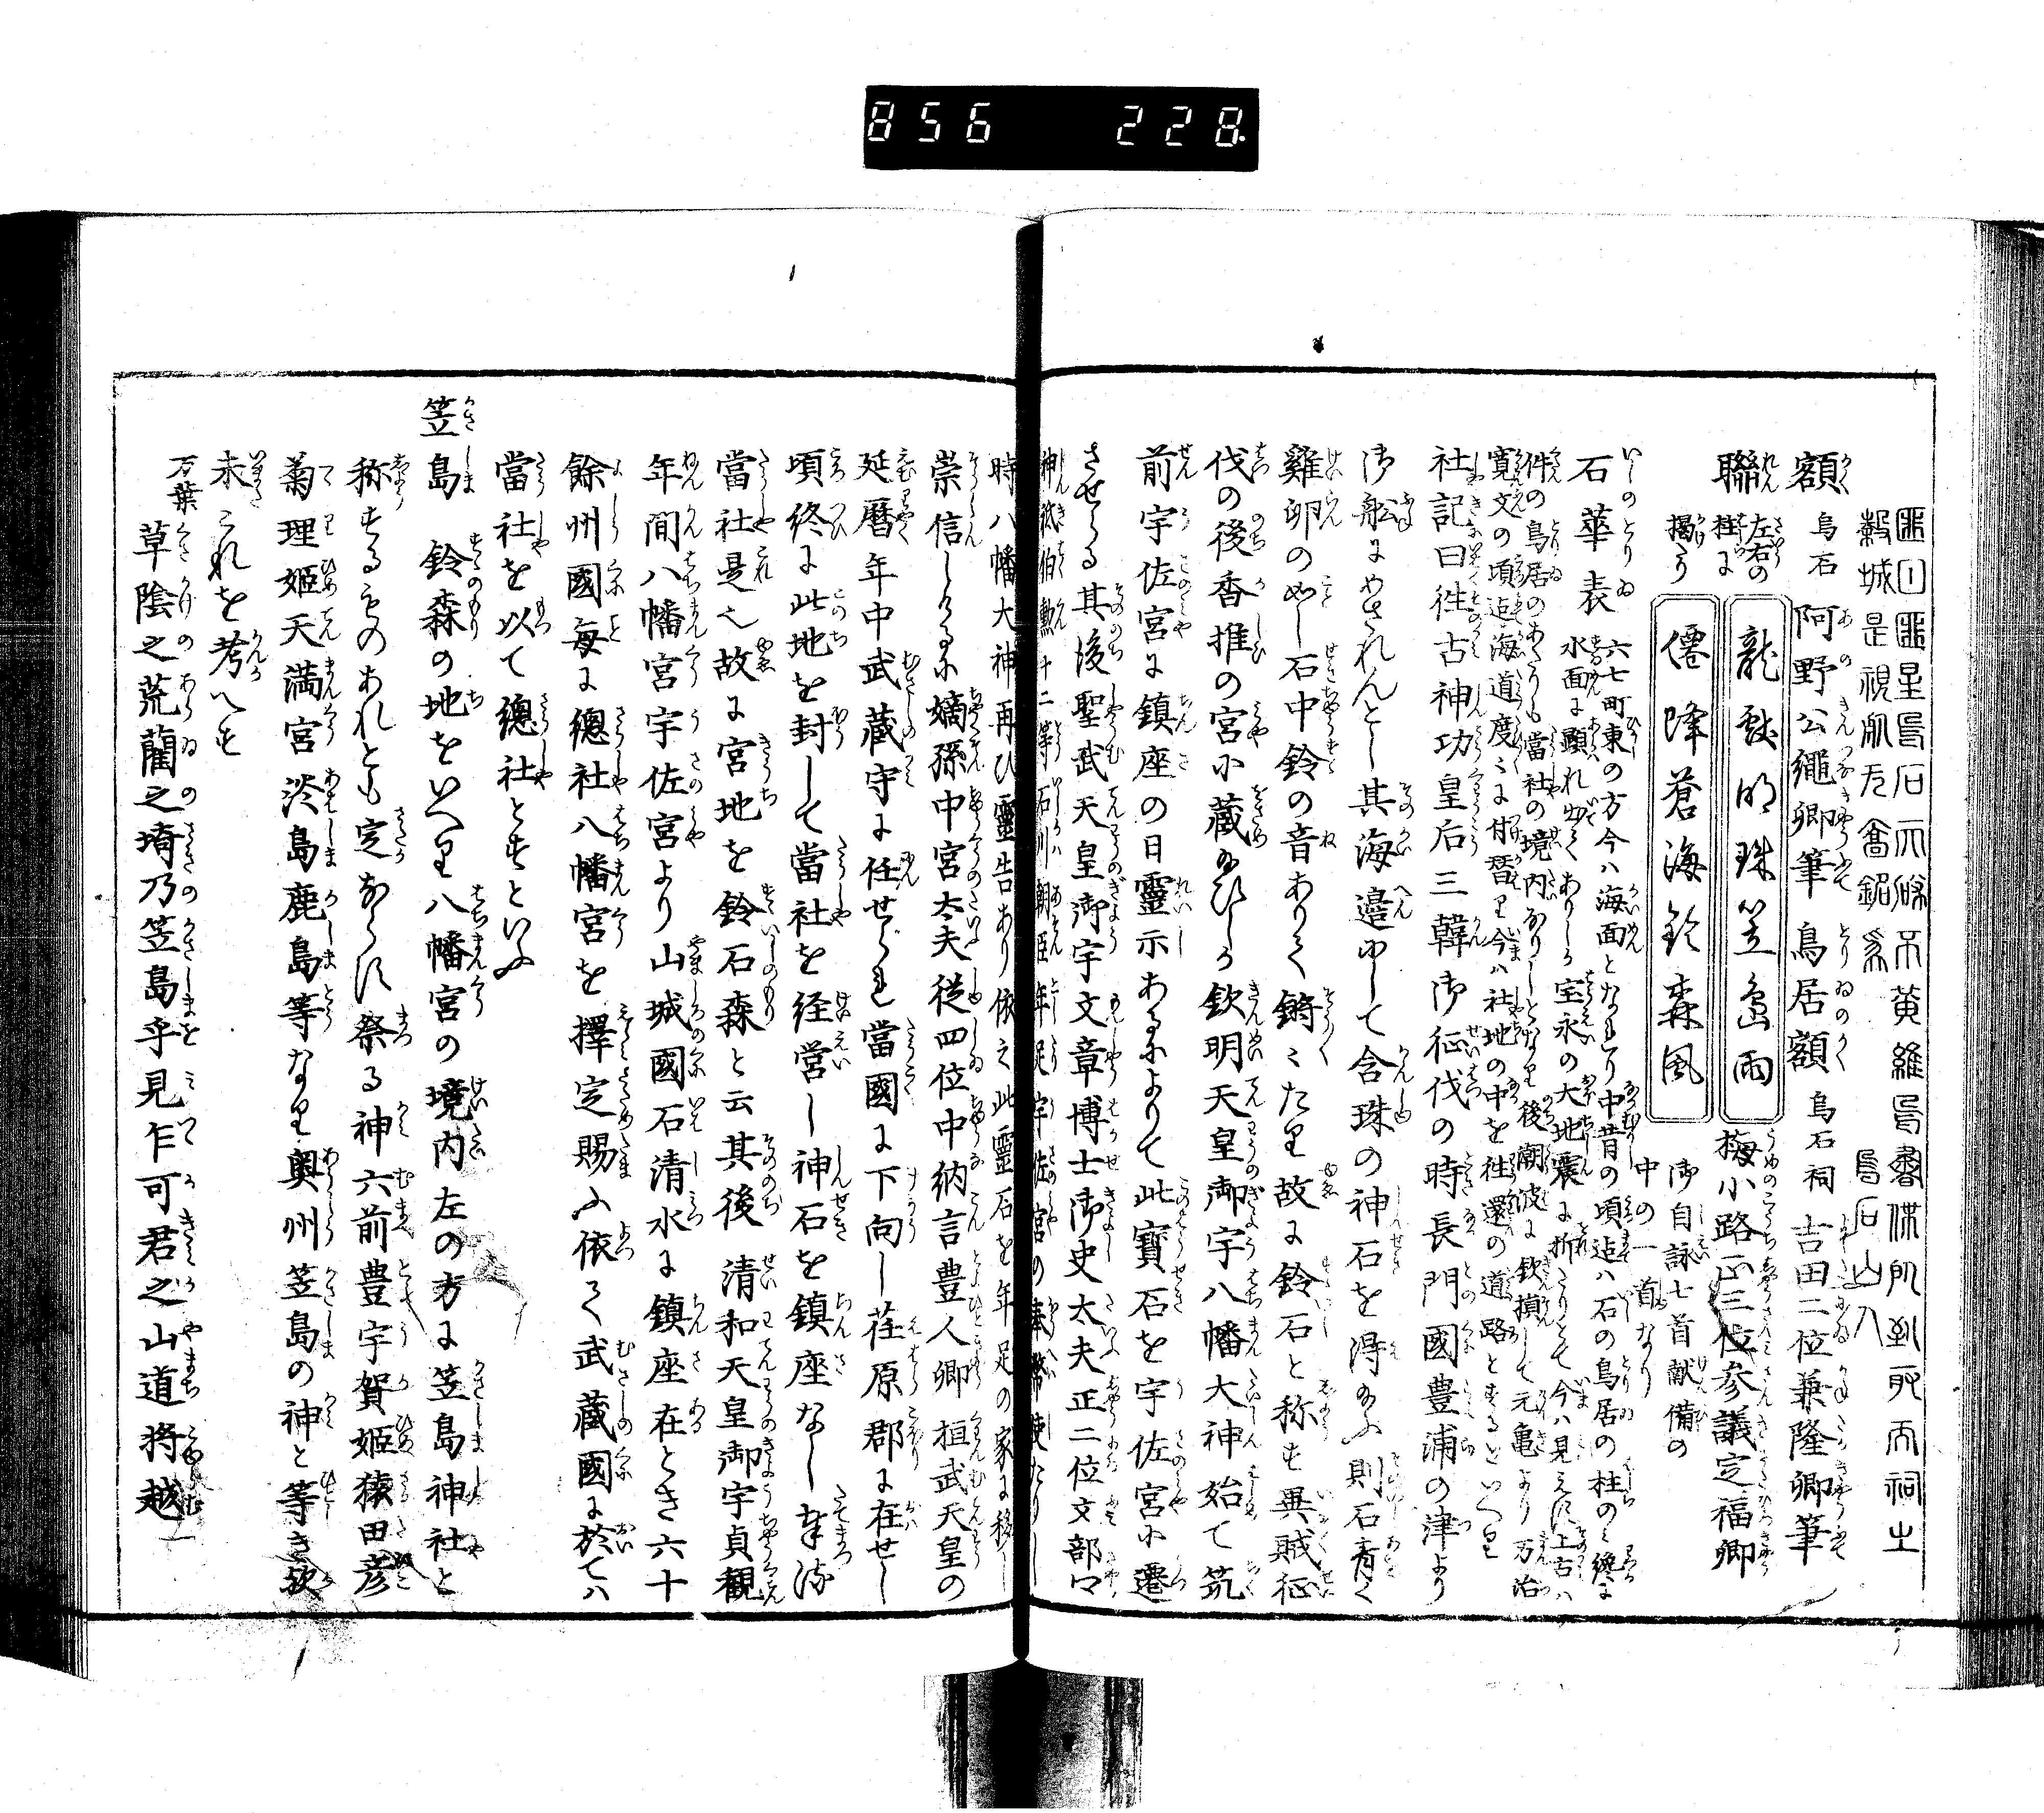 856 228
額 烏石 阿野公縄卿筆 鳥居額 烏石祠 吉田二位兼隆卿筆
聯 左右の柱に掲く
龍献明珠笠島雨
僊降蒼海鈴森風
梅小路正三位参議定福卿
御自詠七首献備の
中の一首なり
石華表 六七町東の方今ハ海面となれり中昔の頃迄ハ石の鳥居の柱のミ纔に
水面に顕れ出てありしか宝永の大地震に折たりとて今ハ見えす上古ハ
件の鳥居のあたりも當社の境内なりしとなり後潮波に欽損して元亀より万治
寛文の頃迄海道度々に付替り今ハ社地の中を往還の道路とするといへり
社記曰往古神功皇后三韓御征伐の時長門國豊浦の津より
御舩にめされんとし其海邉にして含珠の神石を得給ふ則石青く
雞卵の如し石中鈴の音ありて鏘々たり故に鈴石と称す異賊征
伐の後香推の宮に蔵給ひしか欽明天皇御宇八幡大神始て筑
前宇佐宮に鎮座の日靈示あるによりて此寳石を宇佐宮に遷
させらる其後聖武天皇御宇文章博士御史太夫正二位文部口
神祇伯勲十二等石川朝臣年足宇佐宮の奉幣使たりし
時八幡大神再ひ靈告あり依之此靈石を年足の家に移し
崇信しけるに嫡孫中宮太夫従四位中納言豊人卿桓武天皇の
延暦年中武蔵守に任せられ當國に下向し荏原郡に在せし
頃終に此地を封して當社を経営し神石を鎮座なし奉る
當社是也故に宮地を鈴石森と云其後清和天皇御宇貞観
年間八幡宮宇佐宮より山城國石清水に鎮座在とき六十
餘州國毎に總社八幡宮を擇定賜ふ依て武蔵國に於てハ
當社を以て總社とすといふ
笠島 鈴森の地をいへり八幡宮の境内左の方に笠島神社と
称するものあれとも定ならす祭る神六前豊宇賀姫猿田彦
菊理姫天満宮淡島鹿島等なり奥州笠島の神と等き歟
未これを考へす
万葉 草陰之荒藺之埼乃笠島乎見乍可君之山道将越